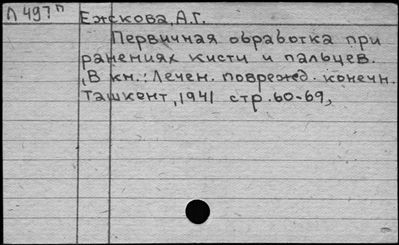 Л 497п Ежскова, А.Г.
Первичная обработка при
ранениях кисти и пальцев.
В кн.: Лечен. поврежд. конечн.
Ташкент, 1941 стр. 60-69,